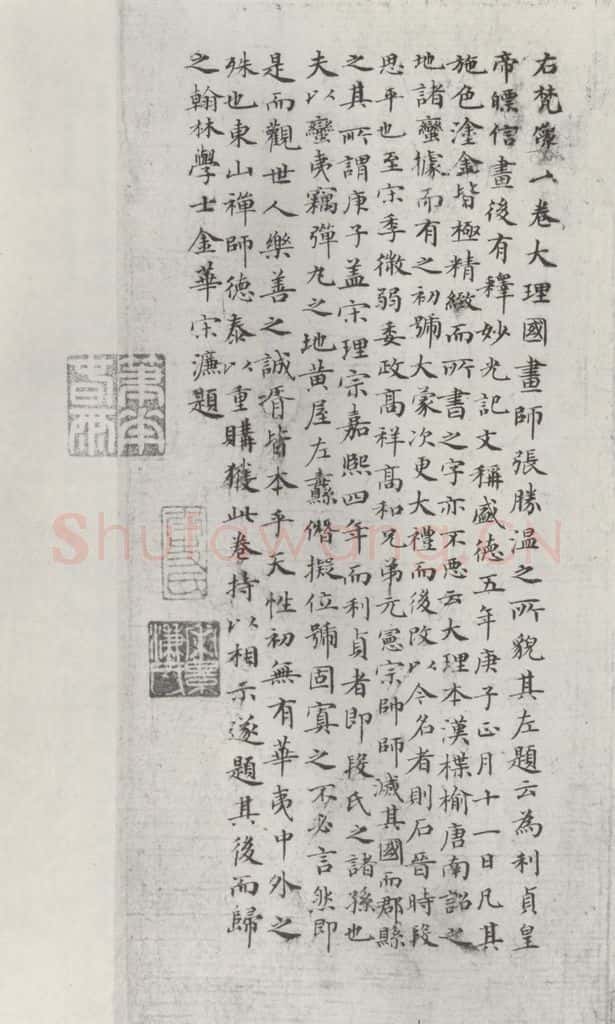 右梵像一卷大理國畫師張勝溫之所貌其左題云為利貞皇
帝㬧信畫後有釋妙光記文稱盛德五年庚子正月十一日凡其
施色塗金皆極精緻而所書之字亦不惡云大理本漢楪榆唐南詔之
地諸蠻據而有之初號大蒙次更大禮而後改以今名者則石晉時段
思平也至宋季微弱委政高祥高和兄弟元憲宗帥師滅其國而郡縣
之其所謂庚子蓋宋理宗嘉熙四年而利貞者即段氏之諸孫也
夫以蠻夷竊彈丸之地黃屋左纛僭擬位號固寘之不必言然即
是而觀世人樂善之誠胥皆本乎天性初無有華夷中外之
殊也東山禪師德泰以重購獲此卷持以相示遂題其後而歸
之翰林學士金華宋濂題
Shufawang.CN